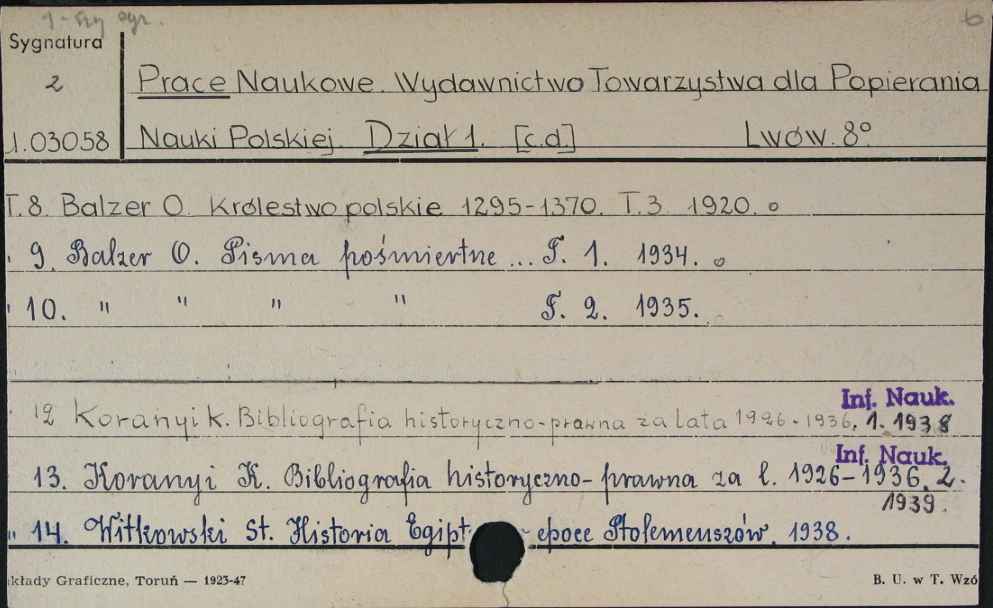 1-szy egz. 6
Sygnatura
2 Prace Naukowe. Wydawnictwo Towarzystwa dla Popierania
1.03058 Nauki Polskiej. Dział 1. [c.d.] Lwów. 8°
T. 8. Balzer O. Królestwo polskie 1295-1370. T. 3. 1920.
" 9. Balzer O. Pisma pośmiertne ... T. 1. 1934.
" 10. " " " " T. 2. 1935.
Inf. Nauk.
" 12 Koranyi K. Bibliografia historyczno-prawna za lata 1926-1936. 1. 1938
Inf. Nauk.
13. Koranyi K. Bibliografia historyczno-prawna za l. 1926-1936. 2.
1939.
" 14. Witkowski St. Historia Egipt epoce Ptolemeuszów. 1938.
kłady Graficzne, Toruń — 1923-47 B. U. w T. Wzó